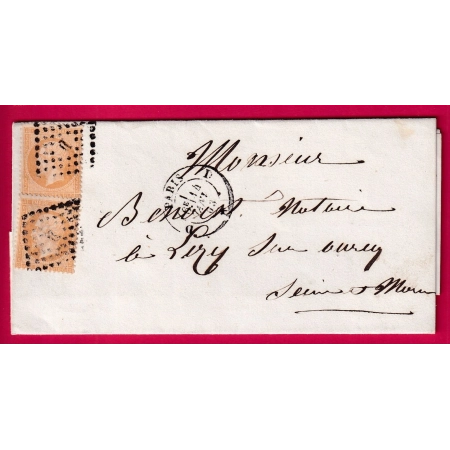 Monsieur
Benoist Notaire
à Lizy Sur ourcq
Seine et Marne
PARIS